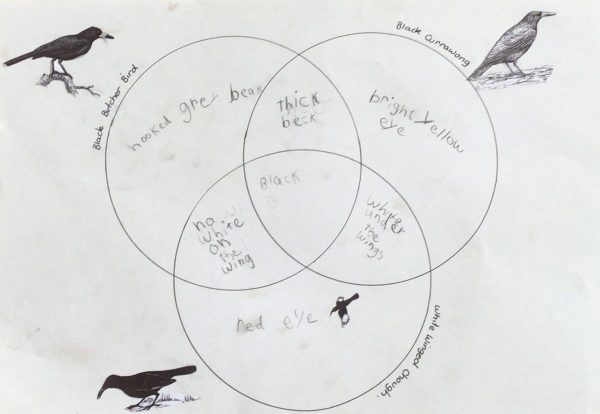 Black Butcher Bird
Black Currawong
hooked grey beak
Thick
beck
bright yellow
eye
Black
no
white
on
the
wing
under
the
wings
Red eye
White Winged Chough.